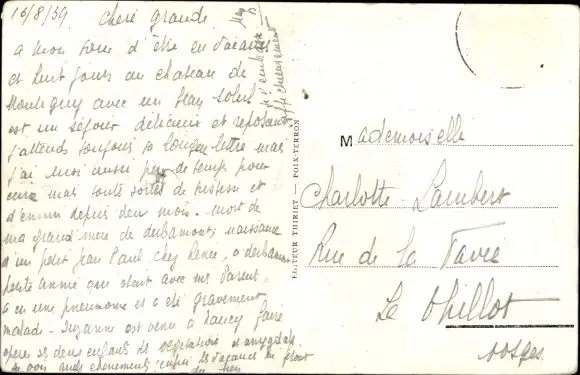 16/8/39 Chère grande
a mon tour d'être en vacances
et huit jours au chateau de
Montigny avec un beau soleil
est un séjour délicieux et reposant
j'attends toujours ta longue lettre mais
j'ai moi aussi peu de temps pour
mais toute sorte de tristesse et
d'ennui depuis deux mois - mort de
ma grand'mère de derbamont, naissance
d'un petit Jean Paul chez Renée, à derbamont
petite annie que étant avec mes Parents
a eu une pneumonie et a été gravement
malade - Suzanne est venue à Nancy faire
opérer ses deux enfants de végétations et amygdales
enfin les vacances me
je t'embrasse
affectueusement
EDITEUR THIRIET — POIX-TERRON
Mademoiselle
Charlotte Lambert
Rue de la Favée
Le Thillot
Vosges